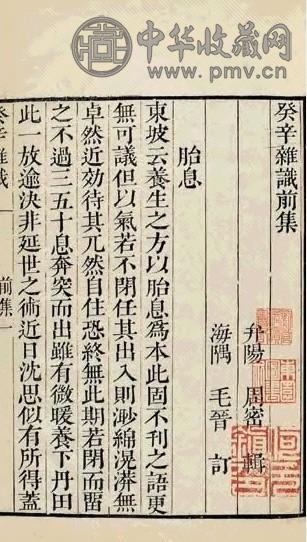 中华收藏网
www.pmv.cn
癸辛雜識前集
弁陽 周密 輯
海隅 毛晉 訂
胎息
東坡云養生之方以胎息爲本此固不刊之語更
無可議但以氣若不閉任其出入則渺綿滉漭無
卓然近効待其兀然自住恐終無此期若閉而留
之不過三五十息奔突而出雖有微暖養下丹田
此一放途決非延世之術近日沈思似有所得蓋
癸辛雜識 前集 一